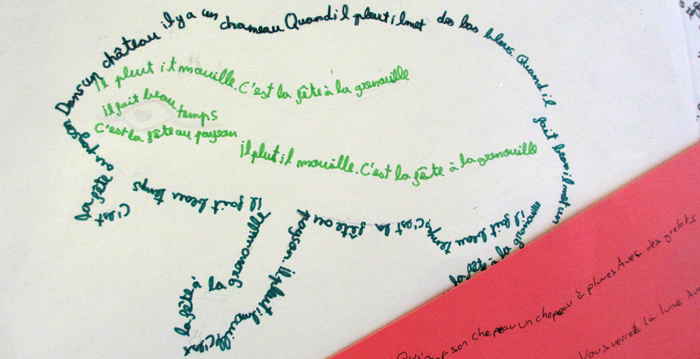 Dans un château il y a un chameau Quand il pleut il met des bas bleus Quand il fait beau il met un
Il pleut it mouille. C'est la fête à la grenouille
il fait beau temps
C'est la fête au paysan
il plut il mouille. C'est la fête à la grenouille
il fait beau temps c'est la fête à la
grenouille
il fait beau temps c'est la fête au paysan il pleut il mouille c'est
la fête à la grenouille
il fait beau temps c'est la fête au paysan
son chepeau un chepeau à plumes Avec des grelots
Vous verrez la lune